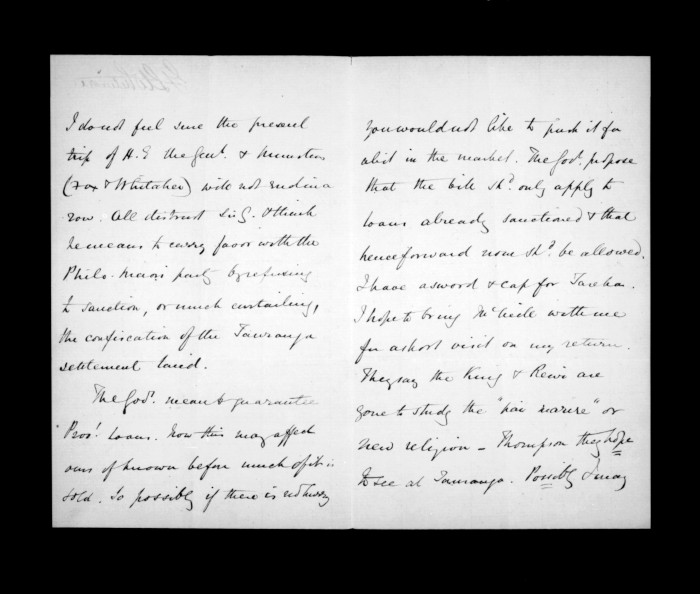 I do not feel sure the present
trip of H.E. the Genl. & ministers
(Fox & Whitaker) will not end in a
row. All distrust Sir G. & think
he means to curry favor with the
Philo-maori party by refusing
to sanction, or much curtailing,
the confiscation of the Tauranga
settlement land.
The Govt. mean to guarantee
Provl. Loans. Now this may affect
ours if known before much of it is
sold. So possibly if there is no hurry
you would not like to push it for
a bit in the market. The Govt. propose
that the bill shd. only apply to
loans already sanctioned & that
henceforward none shd. be allowed.
I have a sword & cap for Tareha.
I hope to bring with me
for a short visit on my return.
They say the King & Rewi are
gone to study the "pai marire" or
new religion - Thompson they hope
to see at Tauranga. Possibly I may